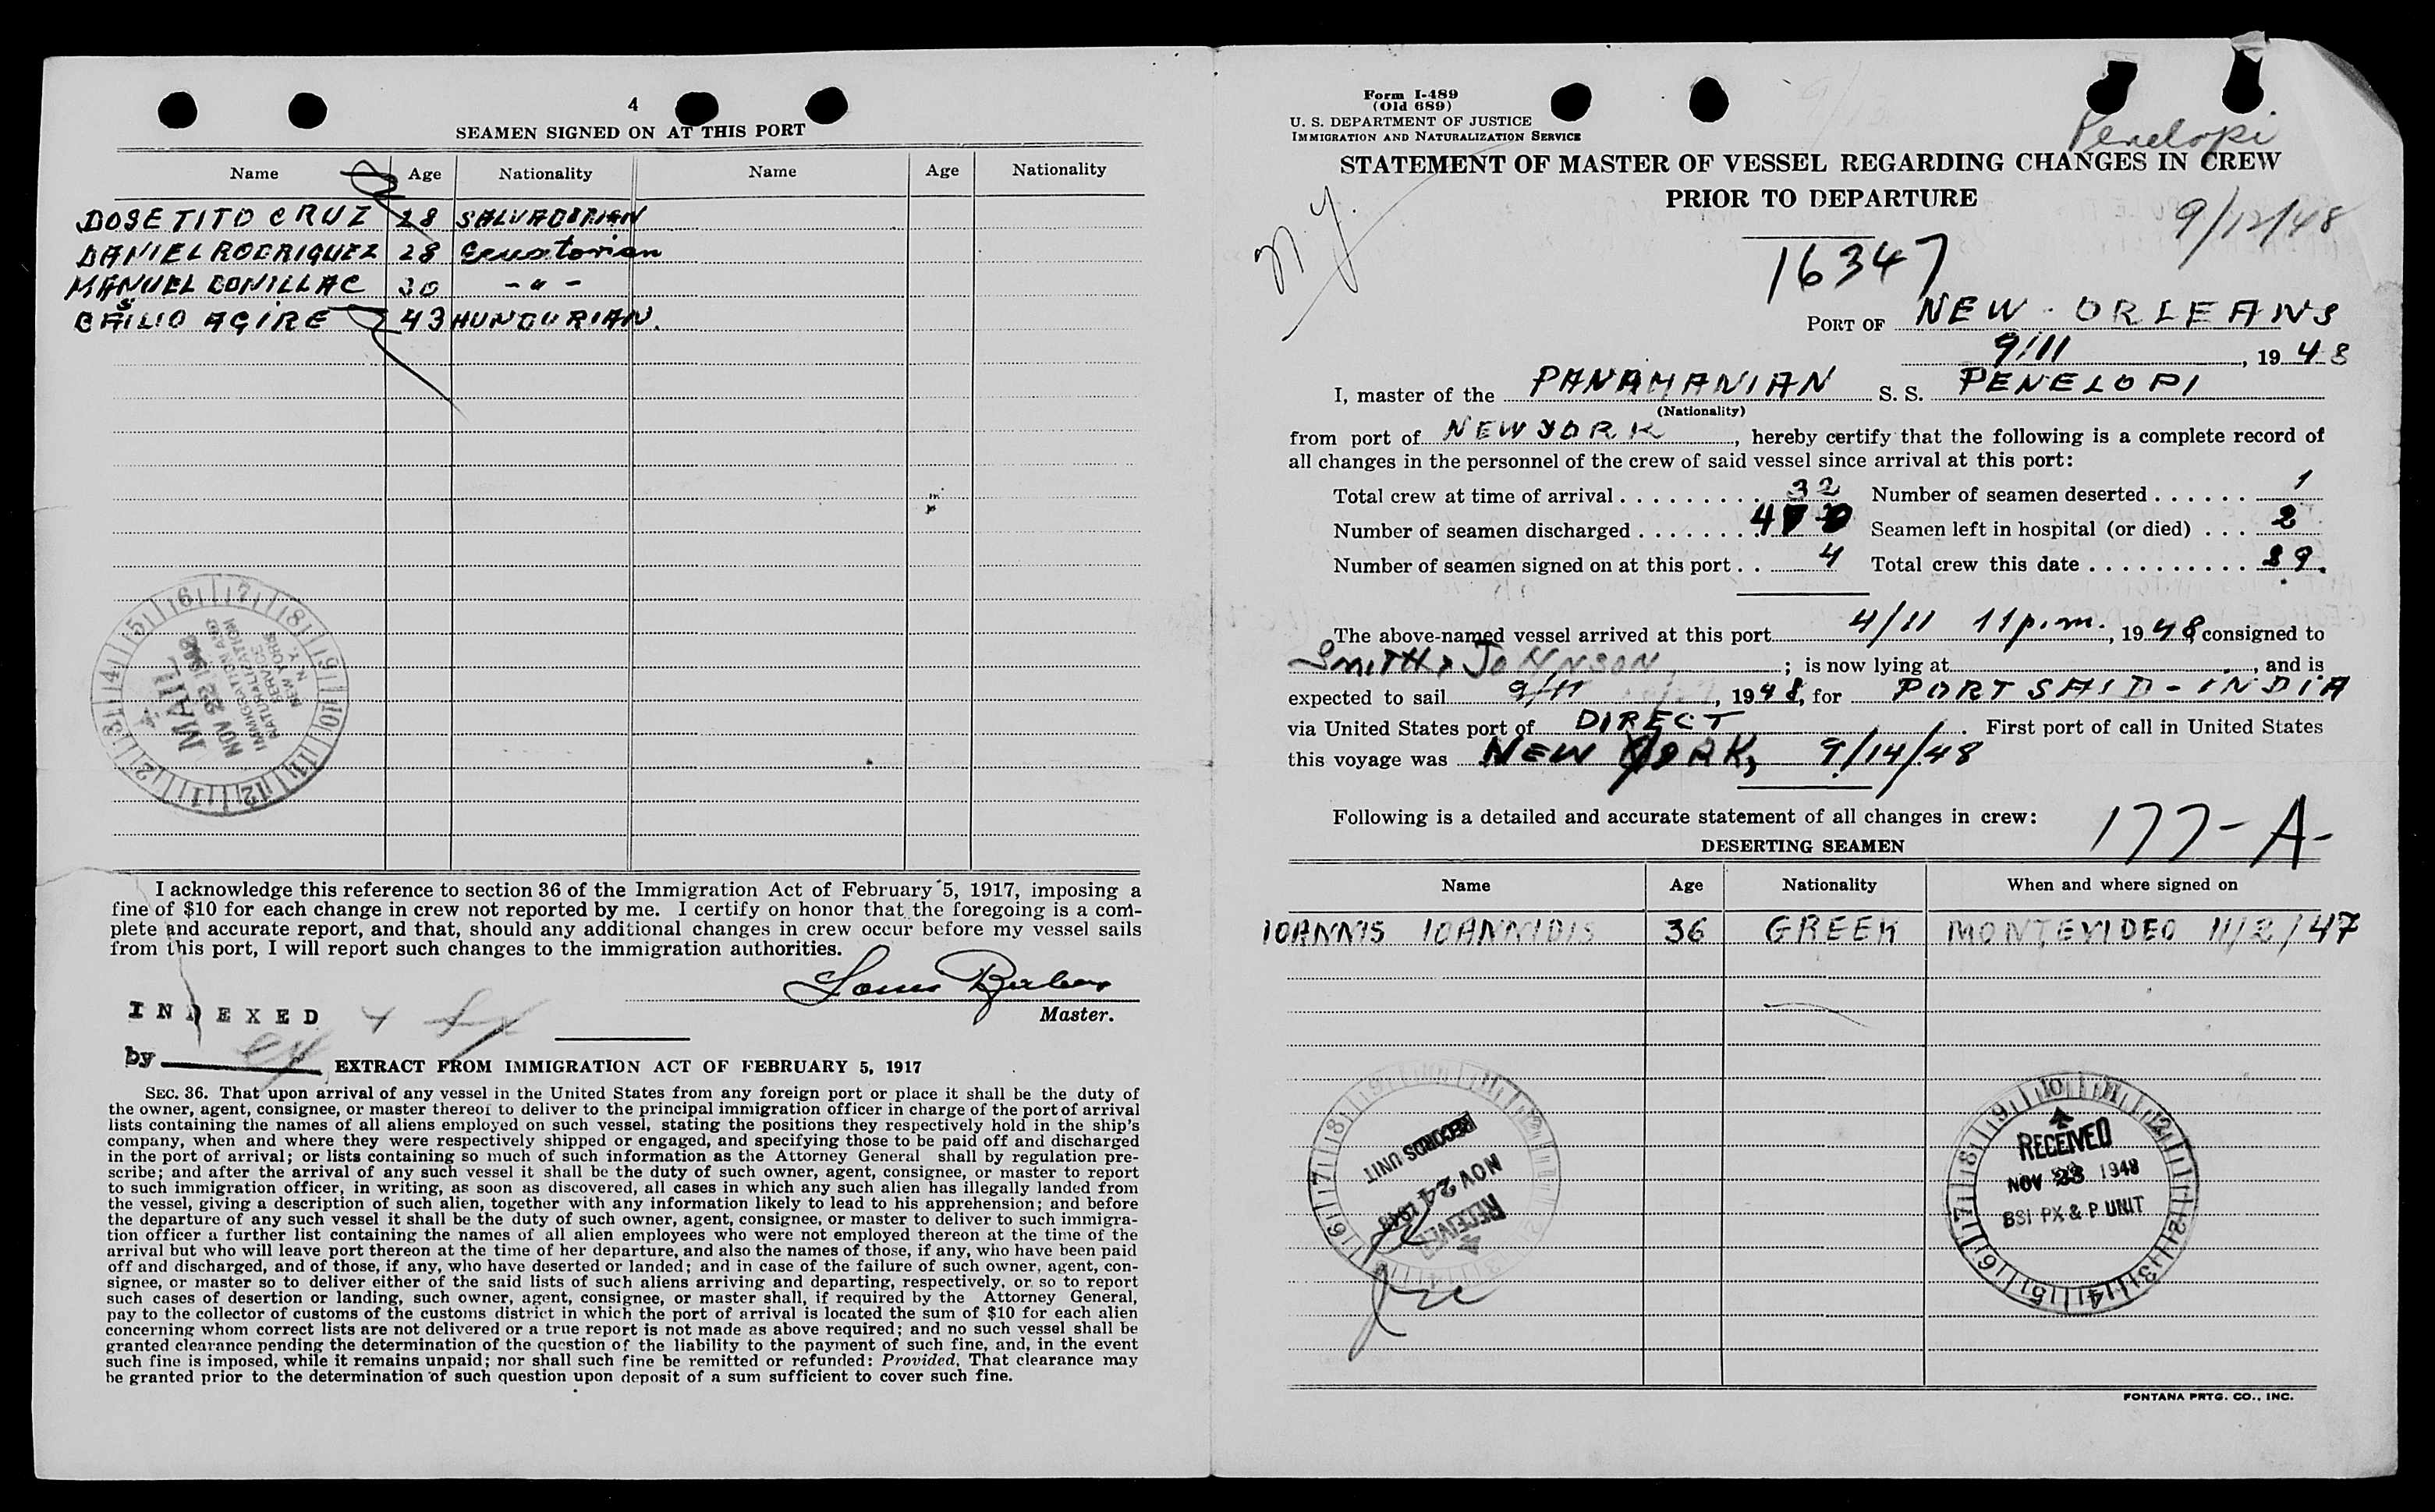 4
SEAMEN SIGNED ON AT THIS PORT
Name Age Nationality Name Age Nationality
DOSE TITO CRUZ 28 SALVADORIAN
DANIEL RODRIGUEZ 28 Ecuatorian
MANUEL BONILLA C 30 - " -
43 HUNDURIAN.
MAIL
NOV 22 1948
IMMIGRATION AND
NATURALIZATION
SERVICE
NEW YORK
N. Y.
I acknowledge this reference to section 36 of the Immigration Act of February 5, 1917, imposing a
fine of $10 for each change in crew not reported by me. I certify on honor that the foregoing is a com-
plete and accurate report, and that, should any additional changes in crew occur before my vessel sails
from this port, I will report such changes to the immigration authorities.
Master.
INDEXED
by
EXTRACT FROM IMMIGRATION ACT OF FEBRUARY 5, 1917
SEC. 36. That upon arrival of any vessel in the United States from any foreign port or place it shall be the duty of
the owner, agent, consignee, or master thereof to deliver to the principal immigration officer in charge of the port of arrival
lists containing the names of all aliens employed on such vessel, stating the positions they respectively hold in the ship's
company, when and where they were respectively shipped or engaged, and specifying those to be paid off and discharged
in the port of arrival; or lists containing so much of such information as the Attorney General shall by regulation pre-
scribe; and after the arrival of any such vessel it shall be the duty of such owner, agent, consignee, or master to report
to such immigration officer, in writing, as soon as discovered, all cases in which any such alien has illegally landed from
the vessel, giving a description of such alien, together with any information likely to lead to his apprehension; and before
the departure of any such vessel it shall be the duty of such owner, agent, consignee, or master to deliver to such immigra-
tion officer a further list containing the names of all alien employees who were not employed thereon at the time of the
arrival but who will leave port thereon at the time of her departure, and also the names of those, if any, who have been paid
off and discharged, and of those, if any, who have deserted or landed; and in case of the failure of such owner, agent, con-
signee, or master so to deliver either of the said lists of such aliens arriving and departing, respectively, or so to report
such cases of desertion or landing, such owner, agent, consignee, or master shall, if required by the Attorney General,
pay to the collector of customs of the customs district in which the port of arrival is located the sum of $10 for each alien
concerning whom correct lists are not delivered or a true report is not made as above required; and no such vessel shall be
granted clearance pending the determination of the question of the liability to the payment of such fine, and, in the event
such fine is imposed, while it remains unpaid; nor shall such fine be remitted or refunded: Provided, That clearance may
be granted prior to the determination of such question upon deposit of a sum sufficient to cover such fine.
Form I-489
(Old 689)
U. S. DEPARTMENT OF JUSTICE
IMMIGRATION AND NATURALIZATION SERVICE
Penelopi
STATEMENT OF MASTER OF VESSEL REGARDING CHANGES IN CREW
PRIOR TO DEPARTURE
N.Y.
9/12/48
16347
PORT OF NEW ORLEANS
9/11, 1948
I, master of the PANAMANIAN S. S. PENELOPI
(Nationality)
from port of NEW YORK, hereby certify that the following is a complete record of
all changes in the personnel of the crew of said vessel since arrival at this port:
Total crew at time of arrival . . . . . . . . . 32 Number of seamen deserted . . . . . . 1
Number of seamen discharged . . . . . . . . 4 Seamen left in hospital (or died) . . . 2
Number of seamen signed on at this port . . 4 Total crew this date . . . . . . . . . . 29.
The above-named vessel arrived at this port 4/11 11 p.m., 1948 consigned to
SMITH & JOHNSON; is now lying at , and is
expected to sail 9/11, 1948, for PORT SAID - INDIA
via United States port of DIRECT. First port of call in United States
this voyage was NEW YORK, 9/14/48
Following is a detailed and accurate statement of all changes in crew:
177-A-
DESERTING SEAMEN
Name Age Nationality When and where signed on
IOANNIS IOANNIDIS 36 GREEK MONTEVIDEO 11/2/47
RECORDS UNIT
NOV 24 1948
RECEIVED
RECEIVED
NOV 23 1948
BSI PX & P UNIT
FONTANA PRTG. CO., INC.